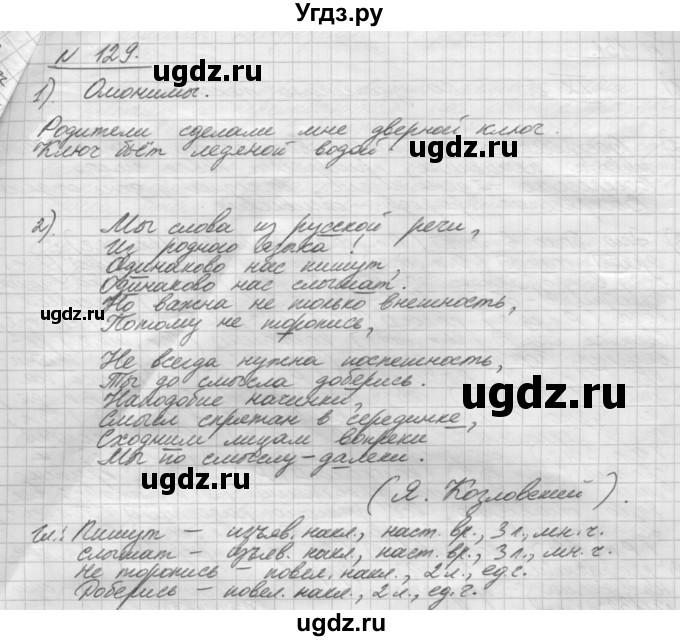 Угдз.ру
N 129.
ugdz.ru
1). Омонимы.
Родители сделали мне дверной ключ.
Ключ бьёт ледяной водой.
ugdz.ru
2). Мы слова из русской речи,
Из родного языка!
Одинаково нас пишут,
Одинаково нас слышат.
Но важна не только внешность,
ugdz.ru
Потому не торопись,
Не всегда нужна поспешность,
Ты до смысла доберись.
ugdz.ru
Наподобие начинки,
Смысл спрятан в серединке,
Сходним лицам вопреки
Мы по смыслу - далеки.
ugdz.ru
(Я. Козловский).
Гл.: Пишут – изъяв. накл., наст. вр., 3 л., мн. ч.
слышат – изъев. накл., наст. вр., 3 л., мн. ч.
Не торопись – повел. накл., 2 л., ед. ч.
Доберись – повел. накл., 2 л., ед. ч.
ugdz.ru